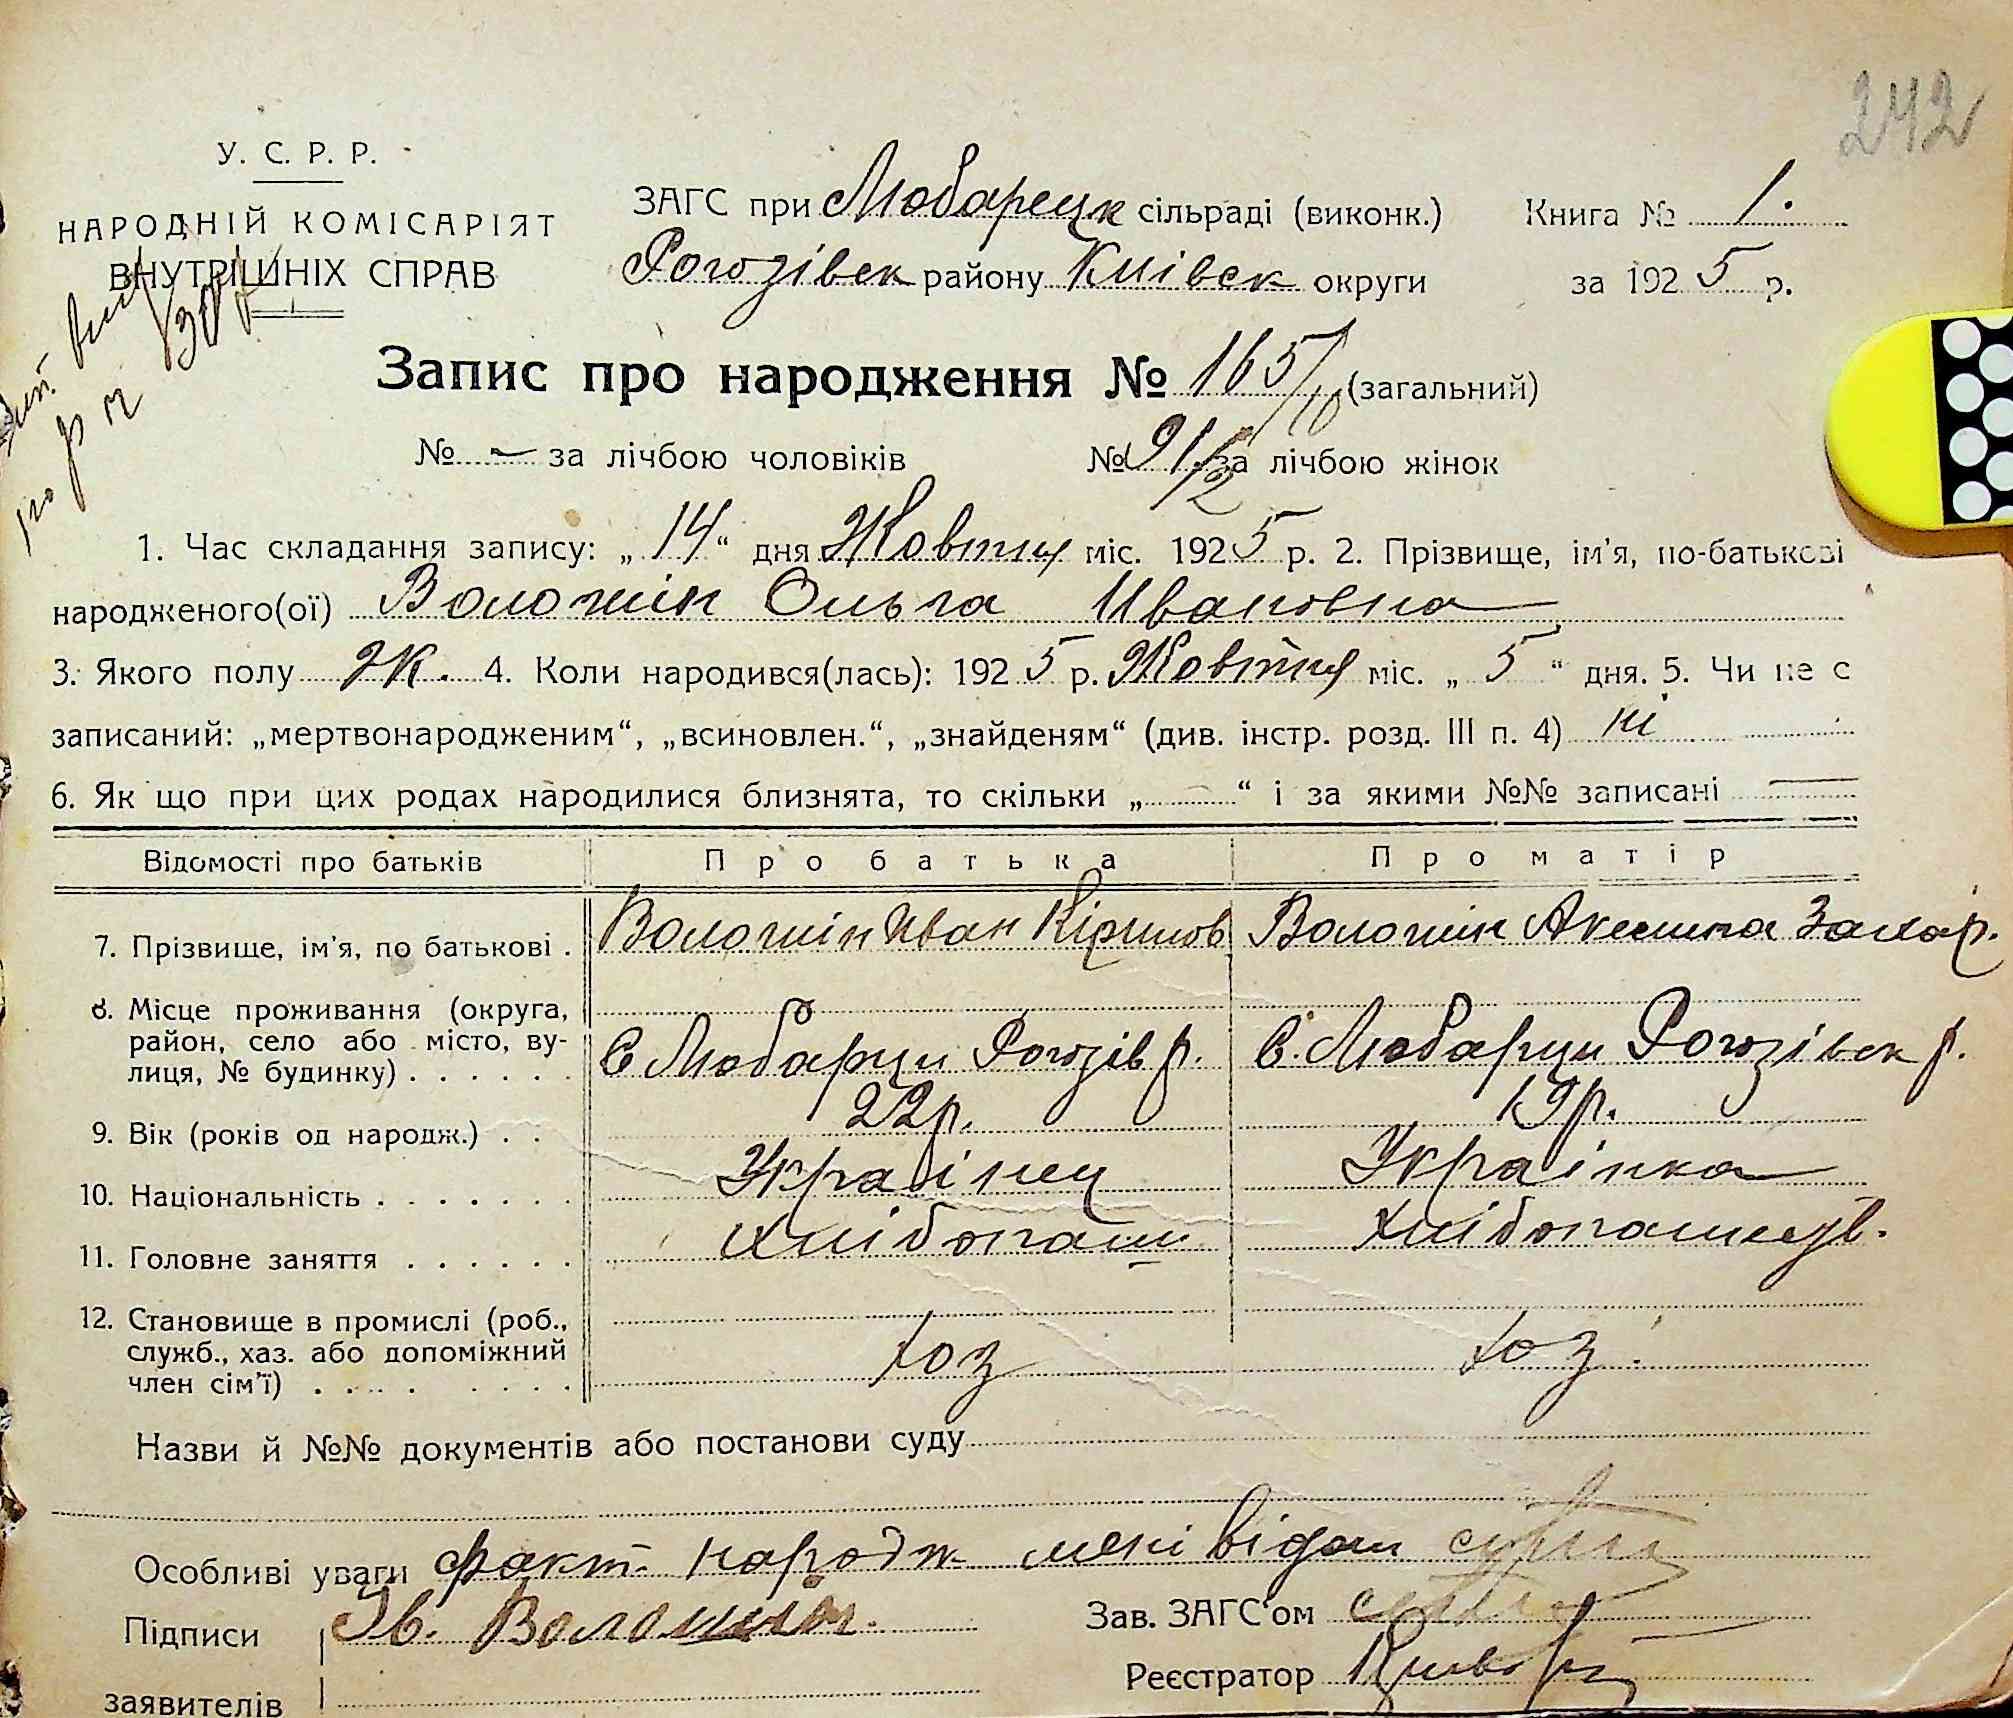 242
У. С. Р. Р.
НАРОДНІЙ КОМІСАРІЯТ
ВНУТРІШНІХ СПРАВ
ЗАГС при Любарецк сільраді (виконк.)
Рогозівск району Київск округи
Книга № 1.
за 1925 р.
Запис про народження № 165/10 (загальний)
№ – за лічбою чоловіків № 91/2 за лічбою жінок
1. Час складання запису: „14“ дня Жовтня міс. 1925 р. 2. Прізвище, ім’я, по-батькові
народженого(ої) Волошін Ольга Ивановна
3. Якого полу ж. 4. Коли народився(лась): 1925 р. Жовтня міс. „5“ дня. 5. Чи не є
записаний: „мертвонародженим“, „всиновлен.“, „знайденям“ (див. інстр. розд. III п. 4) ні
6. Як що при цих родах народилися близнята, то скільки „ “ і за якими №№ записані —
Відомості про батьків Про батька Про матір
7. Прізвище, ім’я, по батькові . Волошін Иван Кірилов Волошін Аксинта Захар.
8. Місце проживання (округа,
район, село або місто, ву-
лиця, № будинку) . . . . . . С Любарци Рогозів р. С. Любарци Рогозівск р.
9. Вік (років од народж.) . . 22 р. 19 р.
10. Національність . . . . . . . Українец Українка
11. Головне заняття . . . . . . Хлібопаш Хлібопашедв.
12. Становище в промислі (роб.,
служб., хаз. або допоміжний
член сім’ї) . . . . . . . . . Хоз Хоз.
Назви й №№ документів або постанови суду
Особливі уваги факт народж мені відом
Підписи Ів. Волошин.
Зав. ЗАГС‘ом
Реєстратор
заявителів